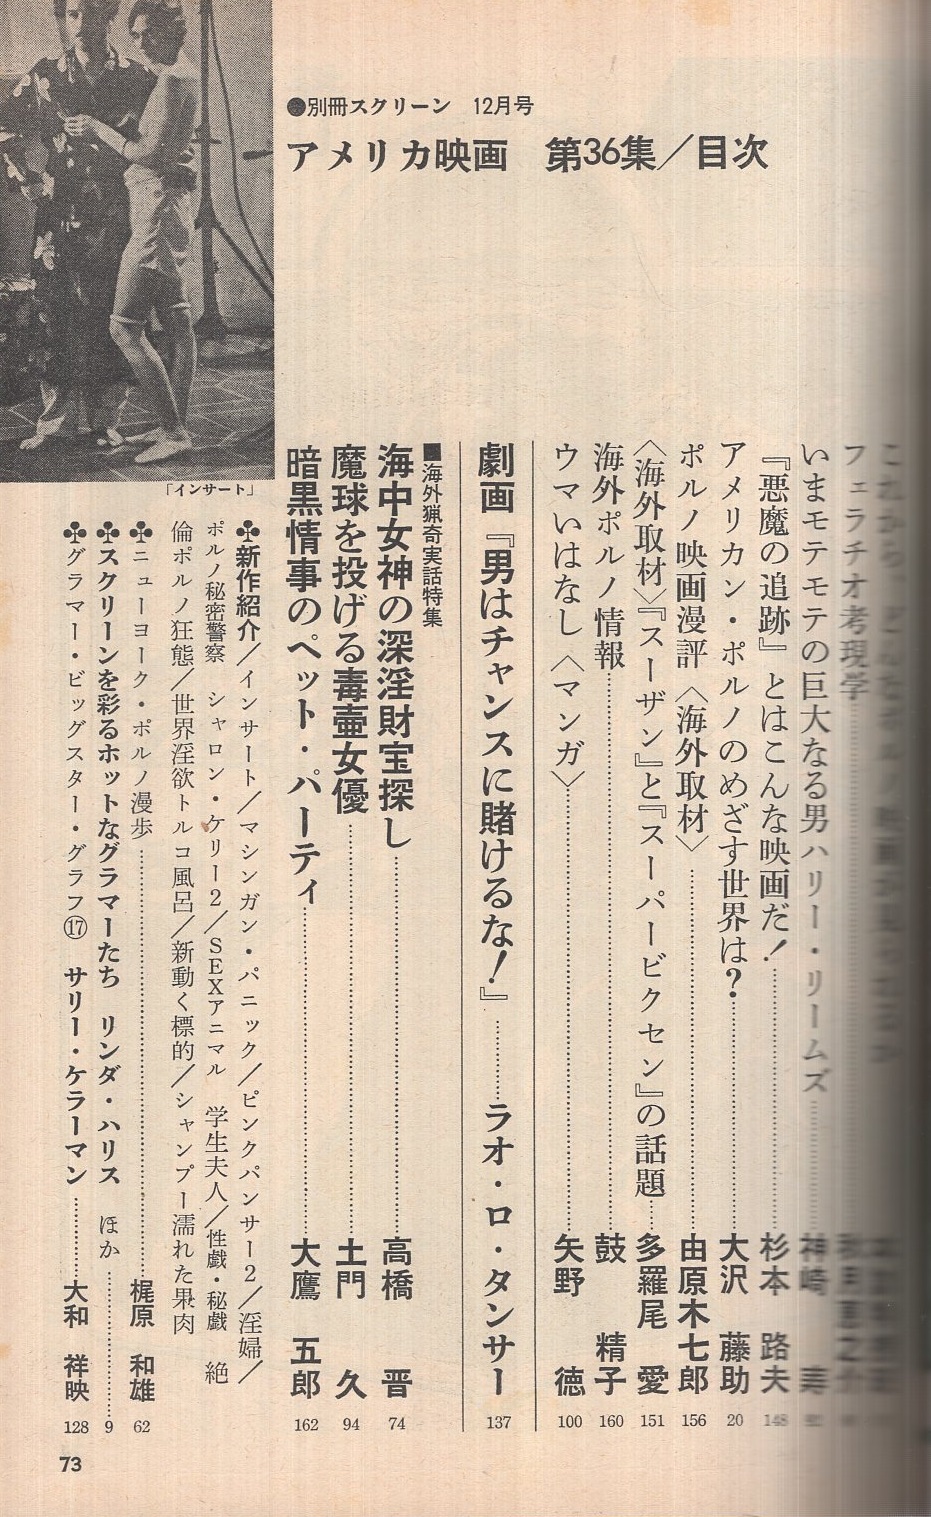 ●別冊スクリーン 12月号
アメリカ映画 第36集／目次
フェラチオ考現学
いまモテモテの巨大なる男ハリー・リームズ 神崎 寿
『悪魔の追跡』とはこんな映画だ！ 杉本 路夫 148
アメリカン・ポルノのめざす世界は？ 大沢 藤助 20
ポルノ映画漫評〈海外取材〉 由原木七郎 156
〈海外取材〉『スーザン』と『スーパービクセン』の話題 多羅尾 愛 151
海外ポルノ情報 鼓 精子 160
ウマいはなし〈マンガ〉 矢野 徳 100
劇画『男はチャンスに賭けるな！』 ラオ・ロ・タンサー 137
■海外猟奇実話特集
海中女神の深淫財宝探し 高橋 晋 74
魔球を投げる毒壷女優 土門 久 94
暗黒情事のペット・パーティ 大鷹 五郎 162
♣新作紹介／インサート／マシンガン・パニック／ピンクパンサー2／淫婦／
ポルノ秘密警察 シャロン・ケリー2／SEXアニマル 学生夫人／性戯・秘戯 絶
倫ポルノ狂態／世界淫欲トルコ風呂／新動く標的／シャンプー濡れた果肉
♣ニューヨーク・ポルノ漫歩 梶原 和雄 62
♣スクリーンを彩るホットなグラマーたち リンダ・ハリス ほか 9
♣グラマー・ビッグスター・グラフ⑰ サリー・ケラーマン 大和 祥映 128
「インサート」
73